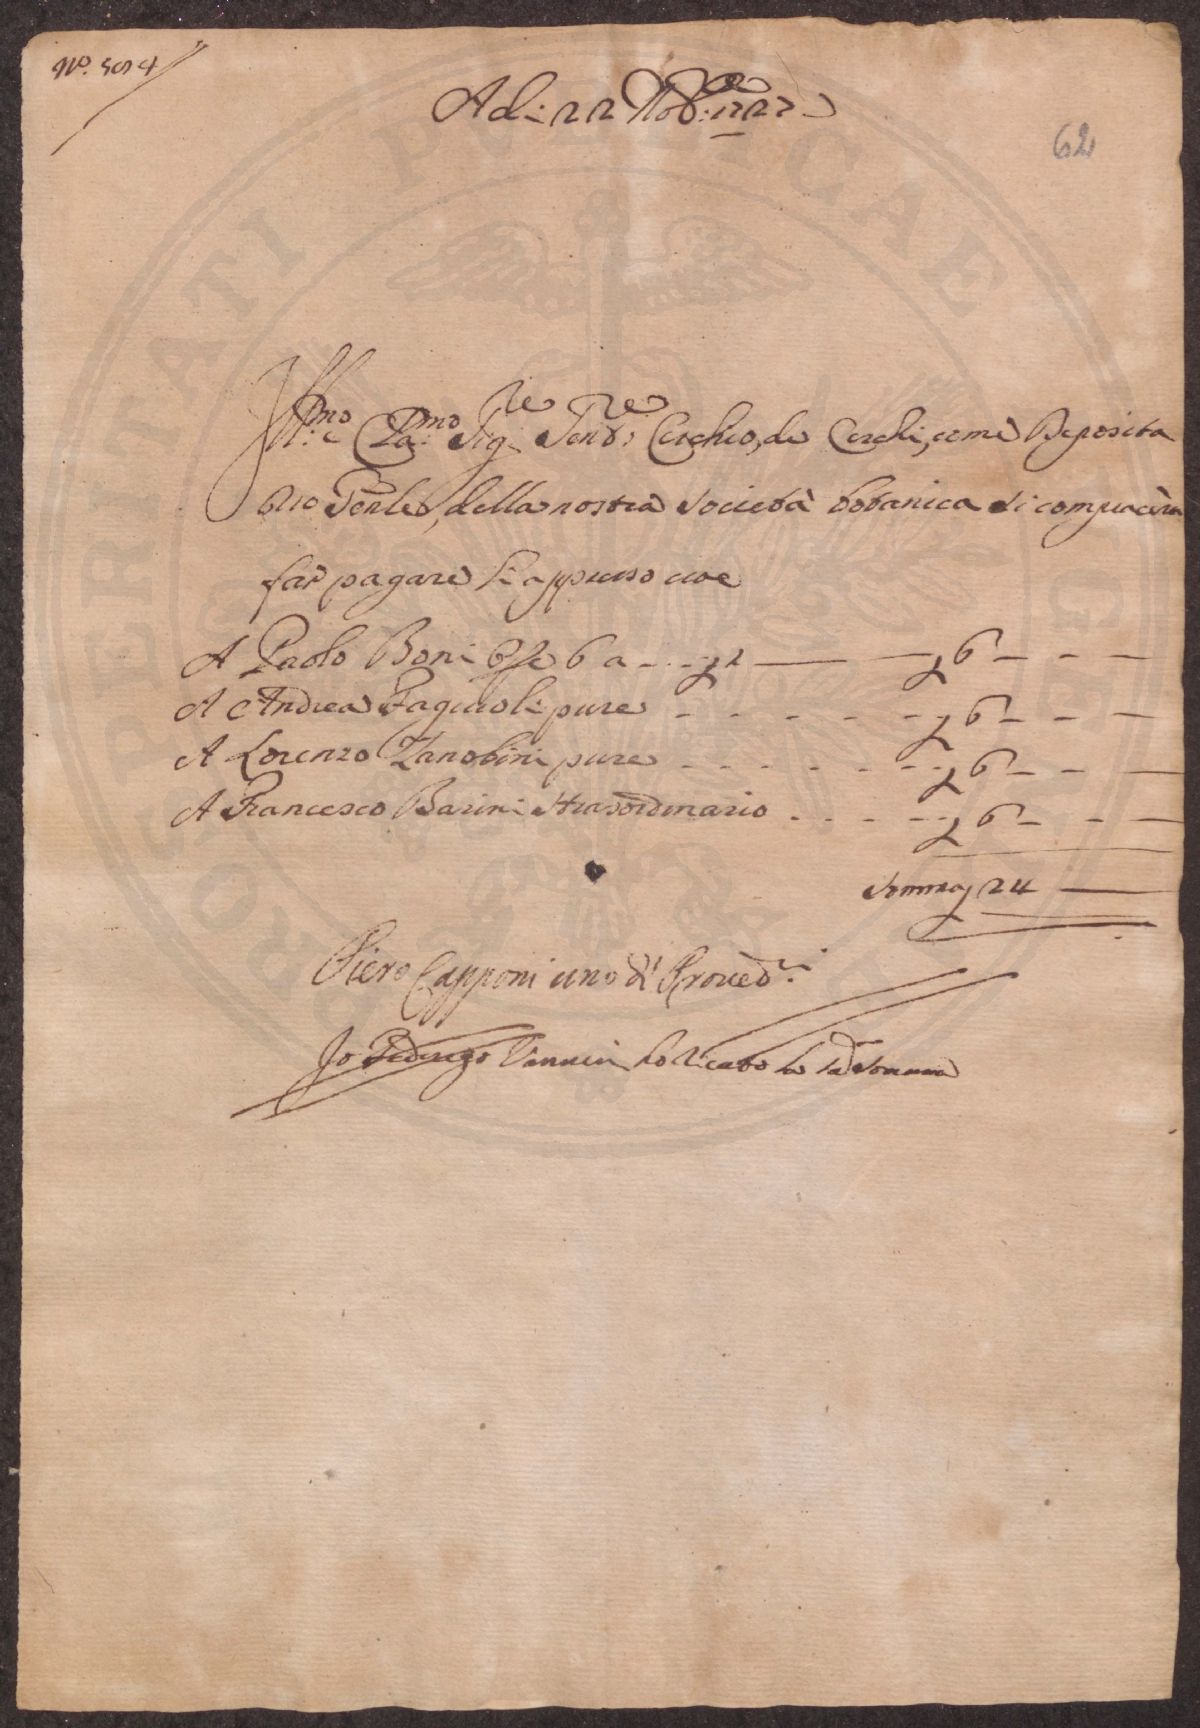 Adi 22 9bre 1727
62
Ill:mo e Cla:mo Sig:re Send:re Cerchio, de Cerchi, come Deposita
rio Genle, della nostra Società botanica si compiacerà
far pagare l'appiuso cioe
A Paolo Boni 6 a £ 6
A Andrea Fagiuoli pure £ 6
A Lorenzo Zanobini pure £ 6
A Francesco Barini strasordinario £ 6
Somma £ 24
Piero Capponi uno d' Proved:ri
Io Vannini ho ricevto la sd Somma